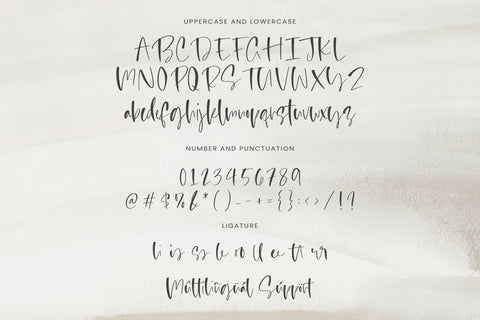 UPPERCASE AND LOWERCASE
ABCDEFGHIJKL
MNOPQRSTUVWXYZ
abcdefghijklmnopqrstuvwxyz
NUMBER AND PUNCTUATION
0123456789
@#$%&*()_-+={}:<>/!?
LIGATURE
ee tt rr
Multilingual Support